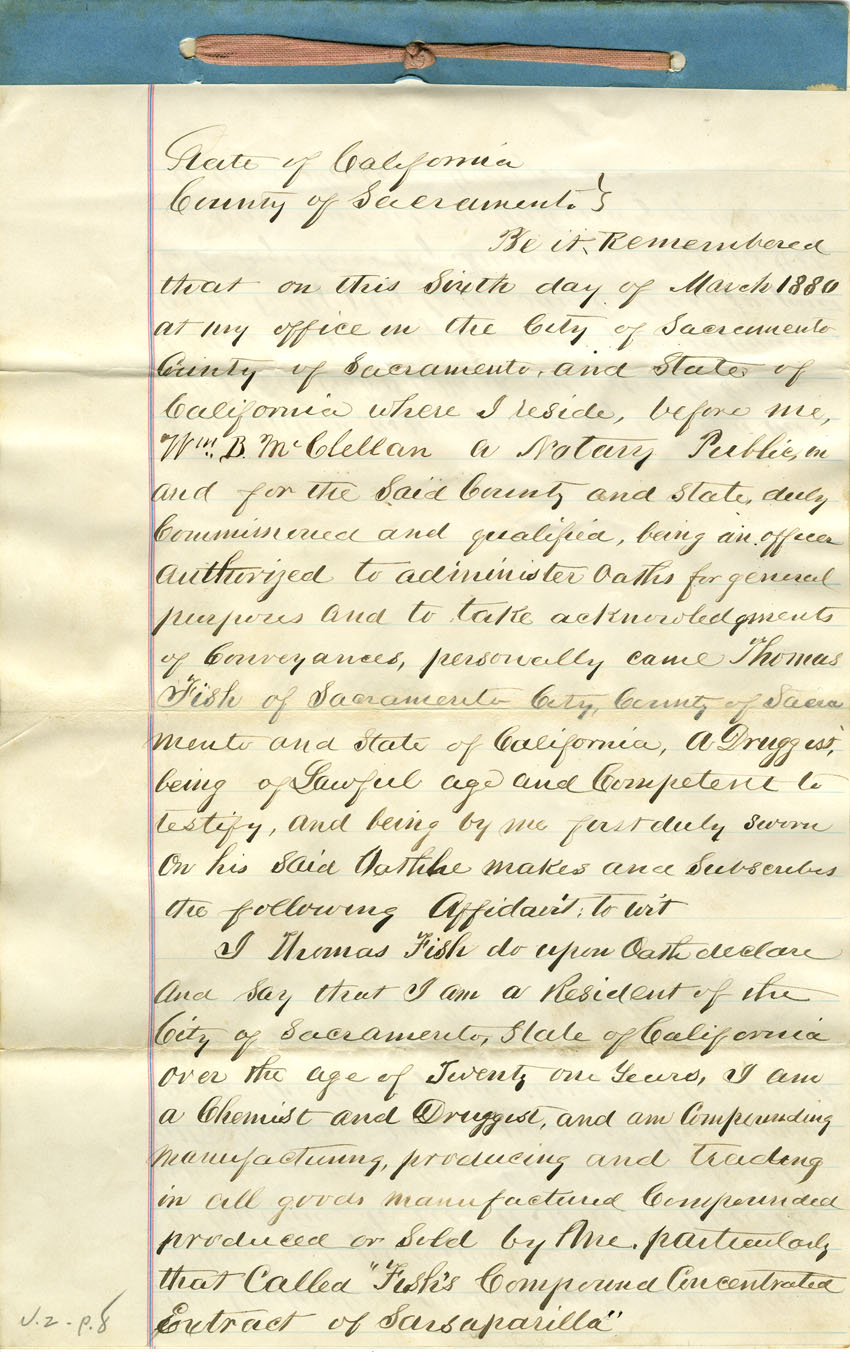 State of California
County of Sacramento }
Be it Remembered
that on this Sixth day of March 1880
at my office in the City of Sacramento
County of Sacramento, and State of
California where I reside, before me,
Wm. B. McClellan a Notary Public, in
and for the Said County and State, duly
Commissioned and qualified, being an officer
authorized to administer Oaths for general
purposes and to take acknowledgments
of Conveyances, personally came Thomas
Fish of Sacramento City, County of Sacra
mento and State of California, a Druggist,
being of Lawful age and Competent to
testify, and being by me first duly sworn
On his said Oath he makes and Subscribes
the following Affidavit; to wit
I Thomas Fish do upon Oath declare
and Say that I am a Resident of the
City of Sacramento, State of California
over the age of Twenty one Years, I am
a Chemist and Druggist, and am Compounding
manufacturing, producing and trading
in all goods manufactured Compounded
produced or Sold by Me. particularly
that Called "Fish's Compound Concentrated
Extract of Sarsaparilla"
V.2-p.8